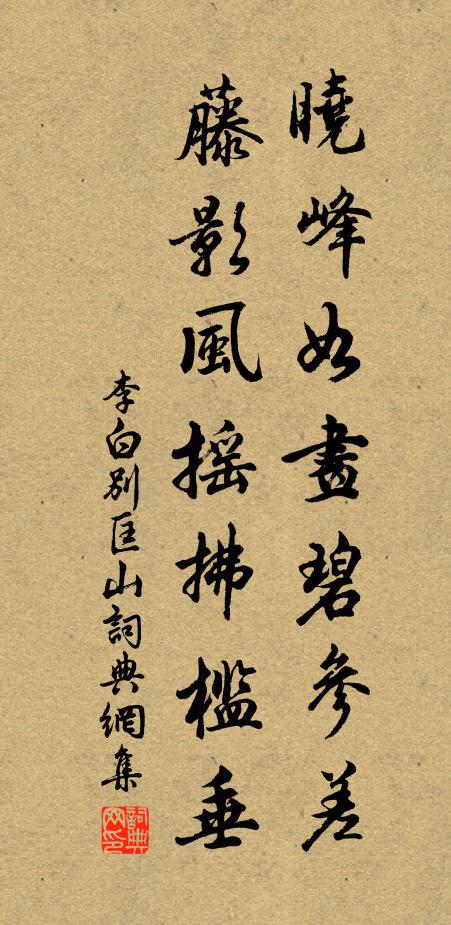 曉峰如畫碧參差
藤影風搖拂檻垂
李白別匡山詞典網集
詞典网印